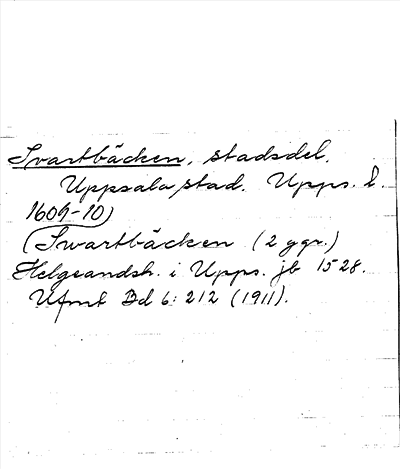 Svartbäcken, stadsdel.
Uppsala stad. Upps. l.
1609-10)
(Swartbäcken (2 ggr.)
Helgeandsh. i Upps. jb 1528.
Ufmt Bd 6: 212 (1911).